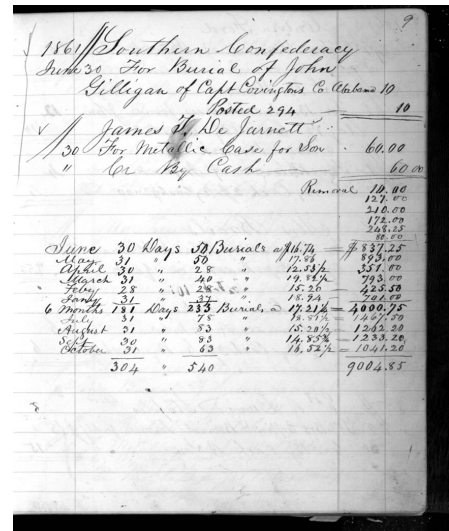 9
1861 Southern Confederacy
June 30 For Burial of John
Gilligan of Capt Covingtons Co Alabama 10
Posted 294 10
James F. De Jarnett
30 For Metallic Case for Son 60.00
" Cr By Cash 60.00
Removal 10.00
127.00
210.00
172.00
248.25
80.00
June 30 Days 50 Burials a $16.74 = $837.25
May 31 " 50 " 17.86 = 893.00
April 30 " 28 " 12.53½ = 351.00
March 31 " 40 " 19.82½ = 793.00
Feby 28 " 28 " 15.20 = 425.50
Jany 31 " 37 " 18.94 = 701.00
6 Months 181 Days 233 Burials a 17.21¼ = 4000.75
July 31 " 78 " 18.81½ = 1467.50
August 31 " 83 " 15.20½ = 1262.20
Sept 30 " 83 " 14.85¾ = 1233.20
October 31 " 63 " 16.52½ = 1041.20
304 " 540 9004.85